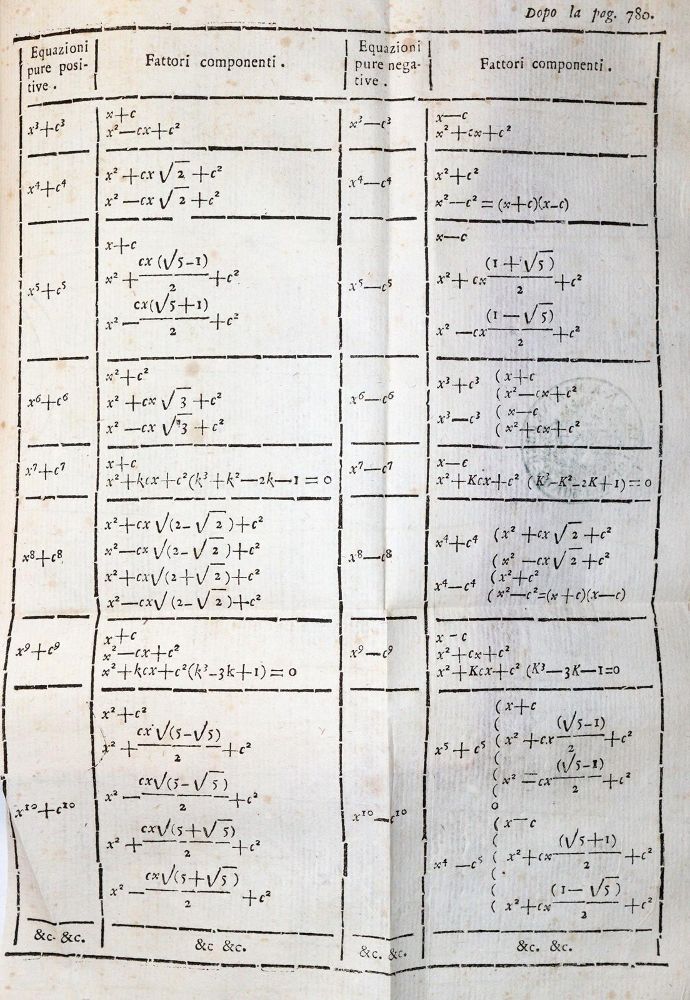 Dopo la pag. 780.
Equazioni pure positive. | Fattori componenti. | Equazioni pure negative. | Fattori componenti.
Equazioni
pure posi-
tive.
Fattori componenti.
Equazioni
pure nega-
tive.
Fattori componenti.
x³+c³
x+c
x²—cx+c²
x³—c³
x—c
x²+cx+c²
x⁴+c⁴
x²+cx√2+c²
x²—cx√2+c²
x⁴—c⁴
x²+c²
x²—c²=(x+c)(x-c)
x⁵+c⁵
x+c
x²+cx(√5-1)/2+c²
x²—cx(√5+1)/2+c²
x⁵—c⁵
x—c
x²+cx(1+√5)/2+c²
x²—cx(1—√5)/2+c²
x⁶+c⁶
x²+c²
x²+cx√3+c²
x²—cx√3+c²
x⁶—c⁶
x³+c³ (x+c
(x²—cx+c²
x³—c³ (x—c
(x²+cx+c²
x⁷+c⁷
x+c
x²+kcx+c²(k³+k²—2k—1=0
x⁷—c⁷
x—c
x²+Kcx+c² (K³-K²-2K+1)=0
x⁸+c⁸
x²+cx√(2-√2)+c²
x²—cx√(2-√2)+c²
x²+cx√(2+√2)+c²
x²—cx√(2-√2)+c²
x⁸—c⁸
x⁴+c⁴ (x²+cx√2+c²
(x²—cx√2+c²
x⁴—c⁴ (x²+c²
(x²—c²=(x+c)(x—c)
x⁹+c⁹
x+c
x²—cx+c²
x²+kcx+c²(k³-3k+1)=0
x⁹—c⁹
x-c
x²+cx+c²
x²+Kcx+c² (K³—3K—1=0
x¹⁰+c¹⁰
x²+c²
x²+cx√(5-√5)/2+c²
x²—cx√(5-√5)/2+c²
x²+cx√(5+√5)/2+c²
x²-cx√(5+√5)/2+c²
x¹⁰—c¹⁰
x⁵+c⁵ (x+c
(x²+cx(√5-1)/2+c²
(x²=cx(√5-1)/2+c²
x⁴—c⁵ (x—c
(x²+cx(√5+1)/2+c²
(x²+cx(1—√5)/2+c²
&c. &c.
&c &c.
&c. &c.
&c. &c.